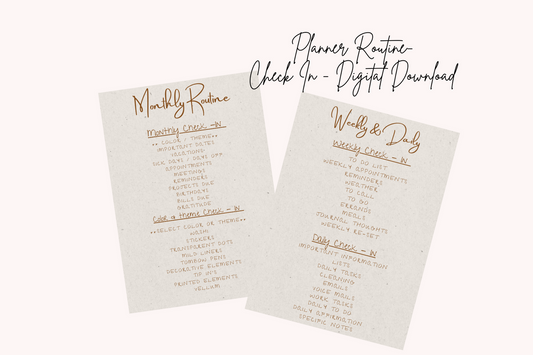 Planner Routine-
Check In - Digital Download
Monthly Routine
Monthly Check -IN
** COLOR / THEME**
IMPORTANT DATES
VACATIONS
SICK DAYS / DAYS OFF
APPOINTMENTS
MEETINGS
REMINDERS
PROJECTS DUE
BIRTHDAYS
BILLS DUE
GRATITUDE
Color & Theme Check - IN
**SELECT COLOR OR THEME**
WASHI
STICKERS
TRANSPARENT DOTS
MILD LINERS
TOMBOW PENS
DECORATIVE ELEMENTS
TIP INS
PRINTED ELEMENTS
VELLUM
Weekly & Daily
Weekly Check - IN
TO DO LIST
WEEKLY APPOINTMENTS
REMINDERS
WEATHER
TO CALL
TO GO
ERRANDS
MEALS
JOURNAL THOUGHTS
WEEKLY RE-SET
Daily Check - IN
IMPORTANT INFORMATION
LISTS
DAILY TASKS
CLEANING
EMAILS
VOICE MAILS
WORK TASKS
DAILY TO DO
DAILY AFFIRMATION
SPECIFIC NOTES